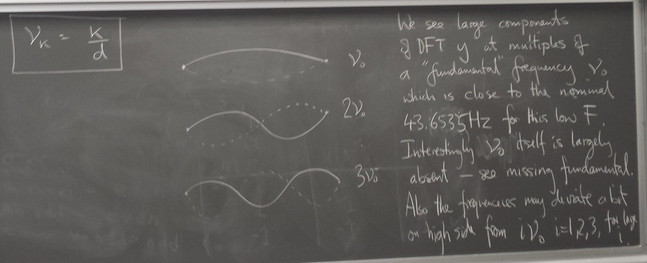 ν_k = k/d
ν₀
2ν₀
3ν₀
We see large components
of DFT y at multiples of
a "fundamental" frequency ν₀
which is close to the nominal
43.6535Hz for this low F.
Interestingly ν₀ itself is largely
absent — see missing fundamental.
Also the frequencies may deviate a bit
on high side from iν₀ i=1,2,3, for